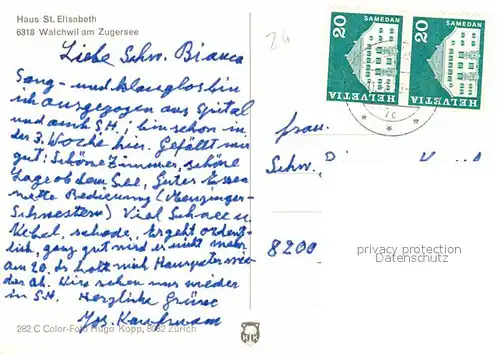 Haus St. Elisabeth
6318 Walchwil am Zugersee
Liebe Schw. Bianca
Sang- und klanglos bin
ich ausgezogen aus Spital
und amb. S.H.; bin schon in
der 3. Woche hier. Gefällt mir
gut: Schöne Zimmer, schöne
Lage ob dem See, Gutes Essen
nette Bedienung (Menzinger-
Schwestern) Viel Schnee u.
Nebel, schade. Ergeht ordent-
lich, ganz gut wird es nicht mehr.
Am 20. ds. holt mich Hauspeter wie-
der ab. Wir sehen uns wieder
in S.H. Herzliche Grüsse
Jos. Kaufmann
282 C Color-Foto Hugo Kopp, 8082 Zürich
24
20
SAMEDAN
HELVETIA
20
SAMEDAN
HELVETIA
Frau
Schw.
8200
privacy protection
Datenschutz